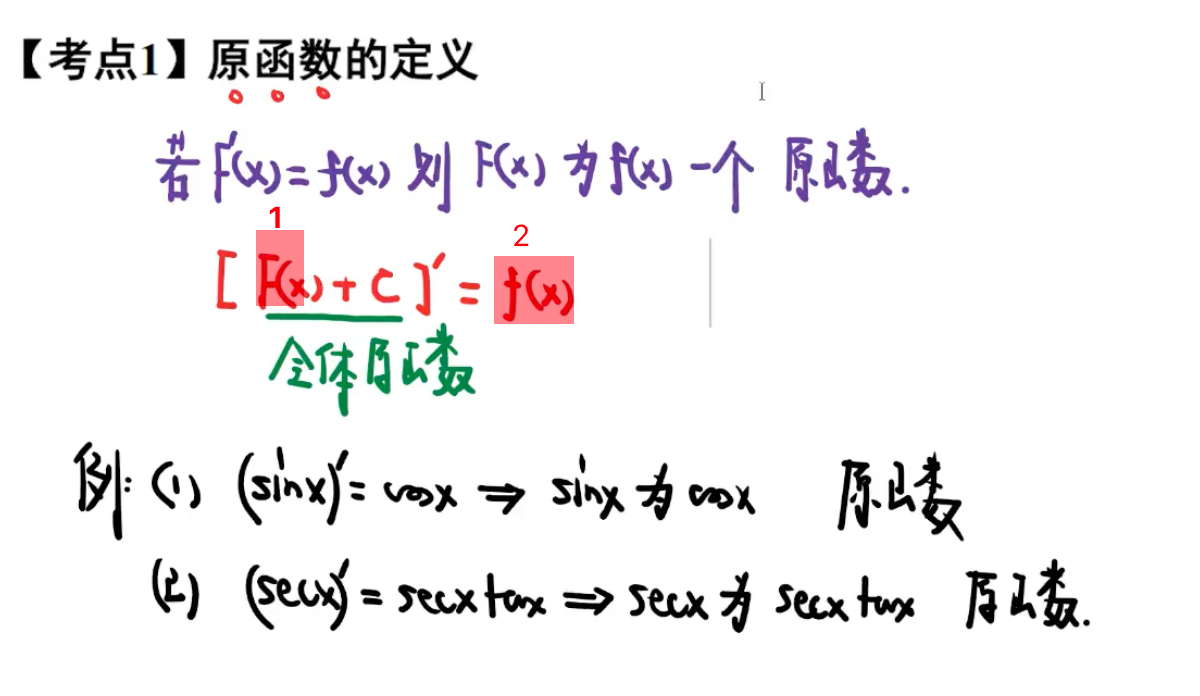 【考点1】原函数的定义
若 F'(x) = f(x) 则 F(x) 为 f(x) 一个 原函数.
1 2
[ F(x) + C ]' = f(x)
全体原函数
例: (1) (sinx)' = cosx ⇒ sinx 为 cosx 原函数
(2) (secx)' = secx tanx ⇒ secx 为 secx tanx 原函数.